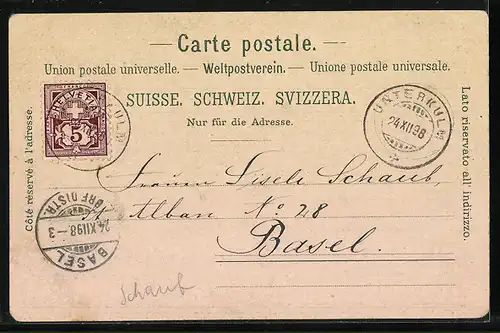 — Carte postale. —
Union postale universelle. — Weltpostverein. — Unione postale universale.
SUISSE. SCHWEIZ. SVIZZERA.
Nur für die Adresse.
Côté réservé à l'adresse.
Lato riservato all' indirizzo.
HELVETIA
5
KULM
UNTERKULM
24 XII 98
Frauen Lisele Schaub,
St Alban No 28
Basel.
BASEL
24.XII.98.–3
BRF. DISTR.
Schaub